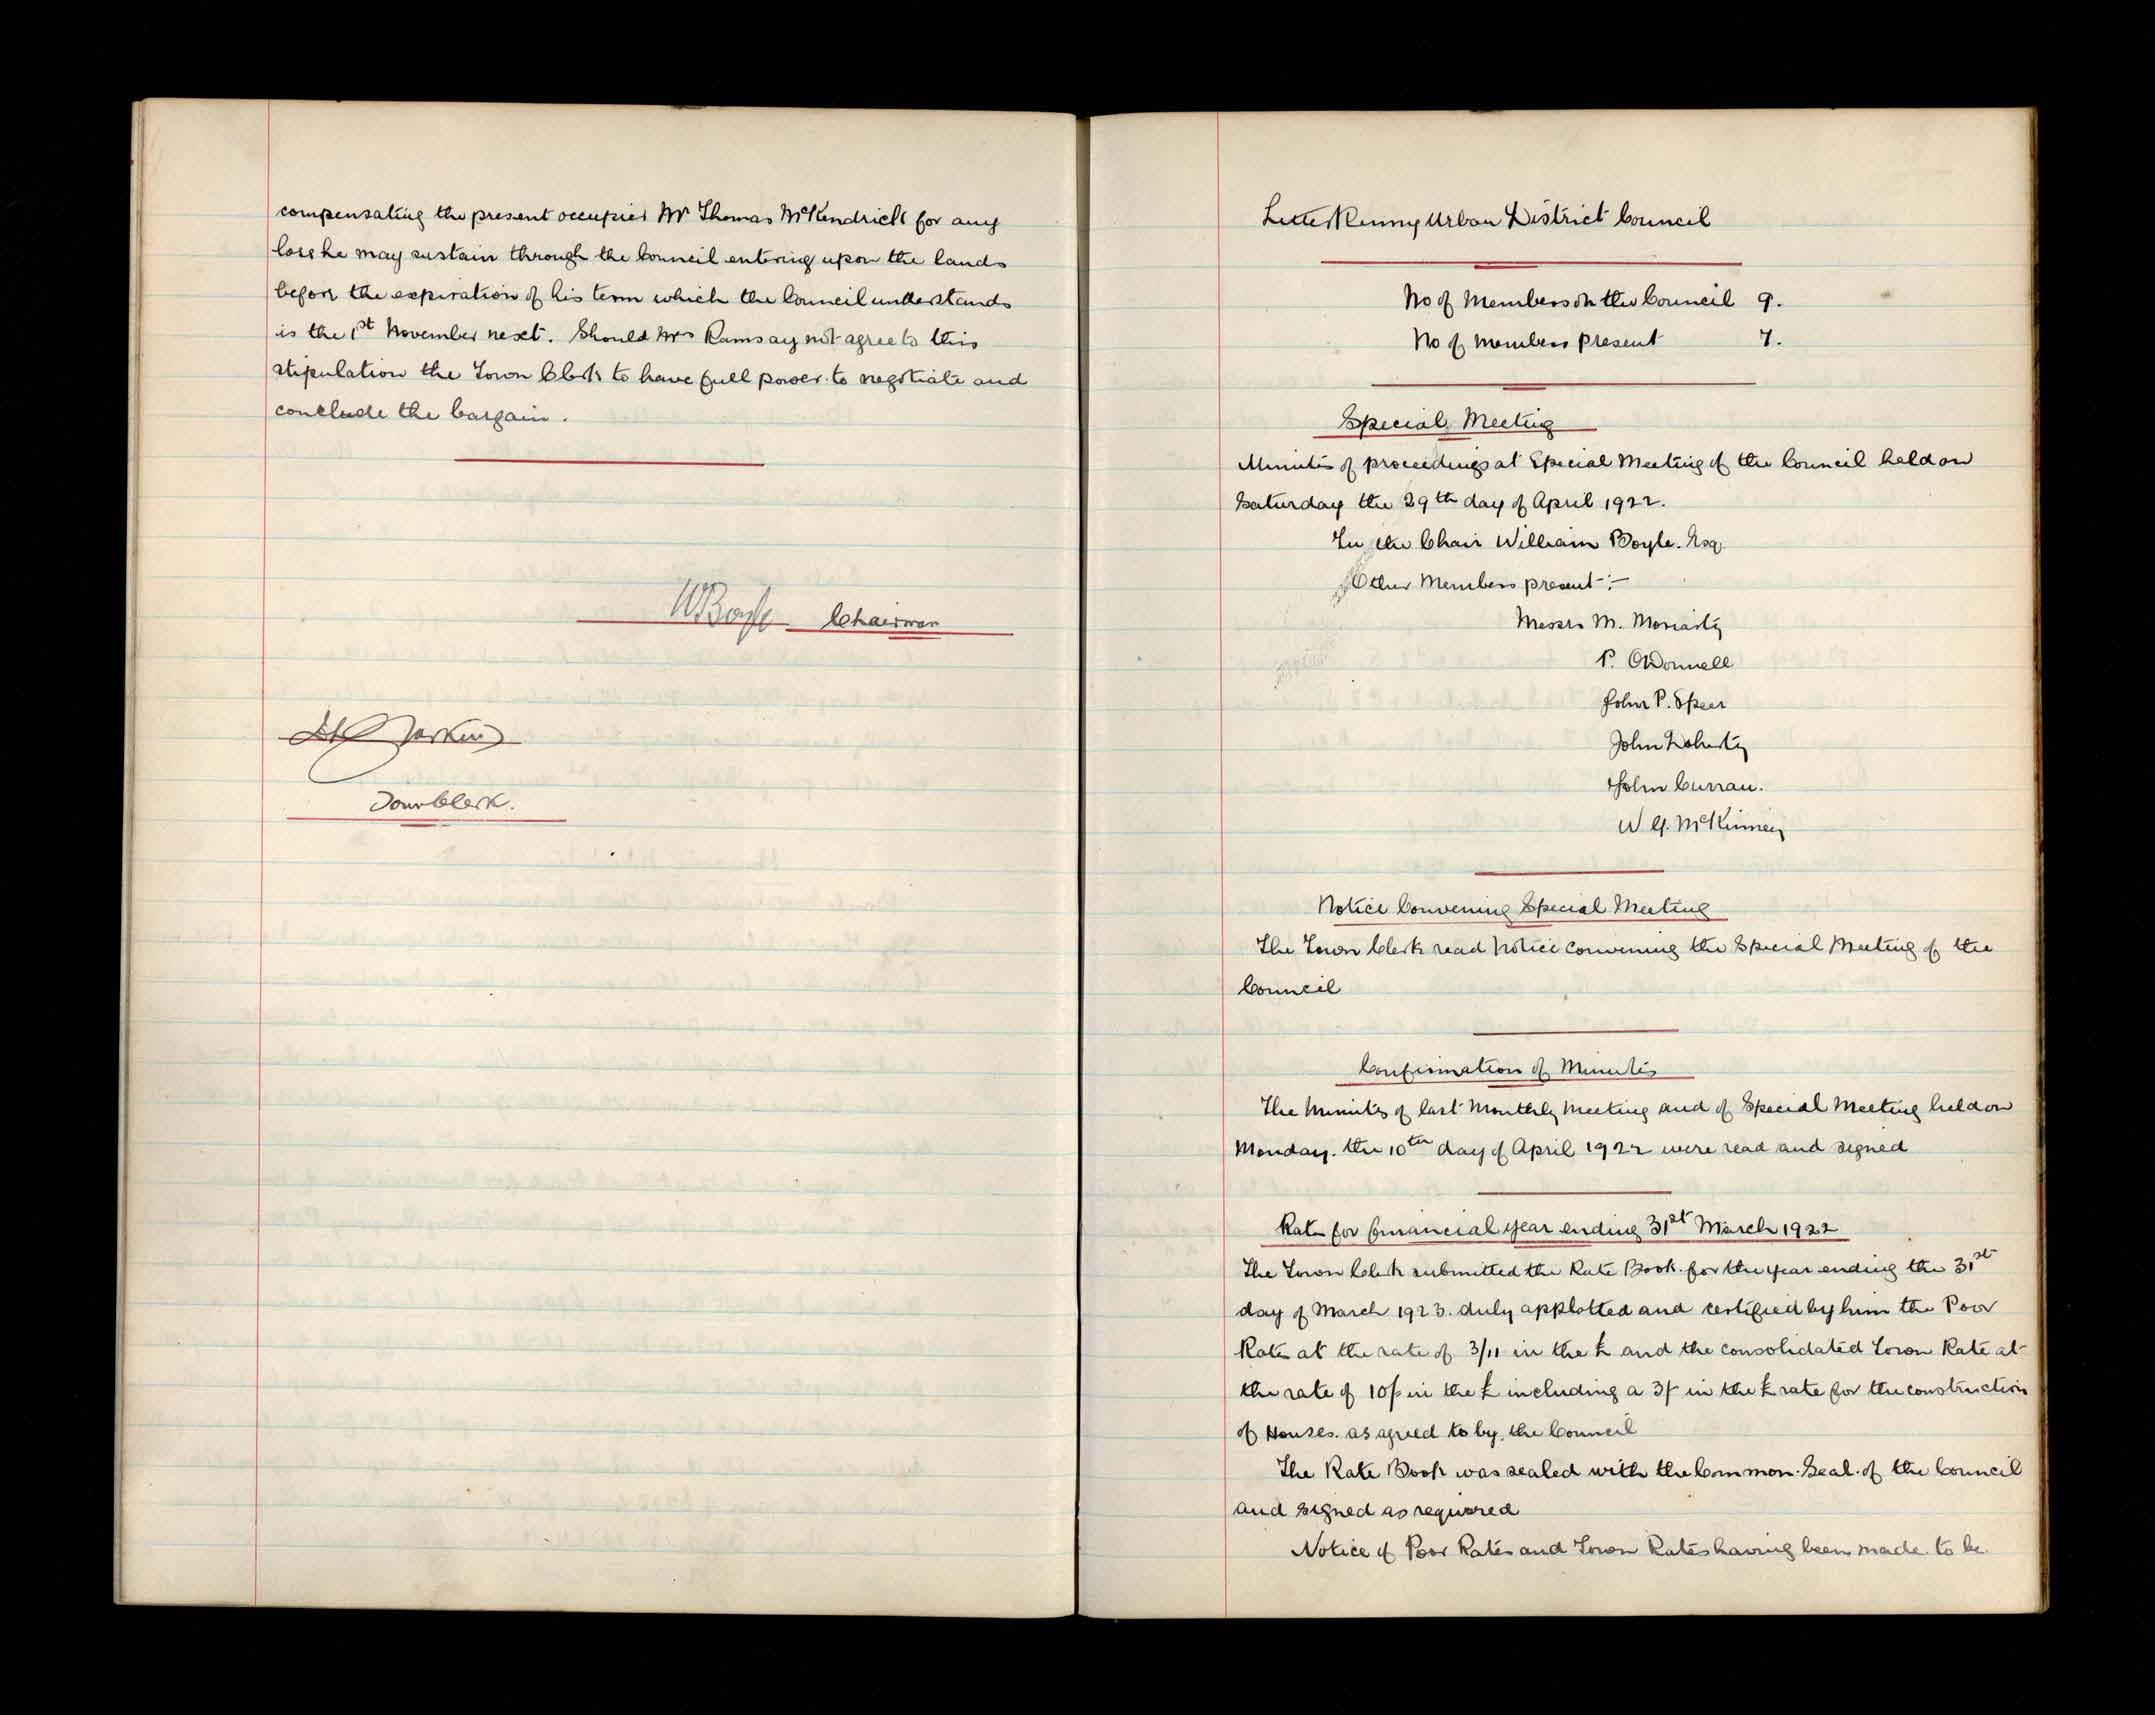 compensating the present occupier Mr Thomas McKendrick for any
loss he may sustain through the Council entering upon the lands
before the expiration of his term which the Council understands
is the 1st November next. Should Mrs Ramsay not agree to this
stipulation the Town Clerk to have full power to negotiate and
conclude the bargain.
W Boyle Chairman
Town Clerk.
Letterkenny Urban District Council
No of Members on the Council 9.
No of members present 7.
Special Meeting
Minutes of proceedings at Special Meeting of the Council held on
Saturday the 29th day of April 1922.
In the Chair William Boyle. Esq
Other Members present:-
Messrs M. Moriarty
P. O'Donnell
John P. Speer
John Doherty
John Curran.
W G. McKinney
Notice Convening Special Meeting
The Town Clerk read Notice convening the Special Meeting of the
Council
Confirmation of Minutes
The Minutes of last Monthly Meeting and of Special Meeting held on
Monday. the 10th day of April 1922 were read and signed
Rate for financial year ending 31st March 1922
The Town Clerk submitted the Rate Book for the year ending the 31st
day of March 1923. duly applotted and certified by him the Poor
Rate at the rate of 3/11 in the £ and the consolidated Town Rate at
the rate of 10/- in the £ including a 3/- in the £ rate for the construction
of Houses. as agreed to by the Council
The Rate Book was sealed with the Common Seal of the Council
and signed as required
Notice of Poor Rates and Town Rates having been made to be